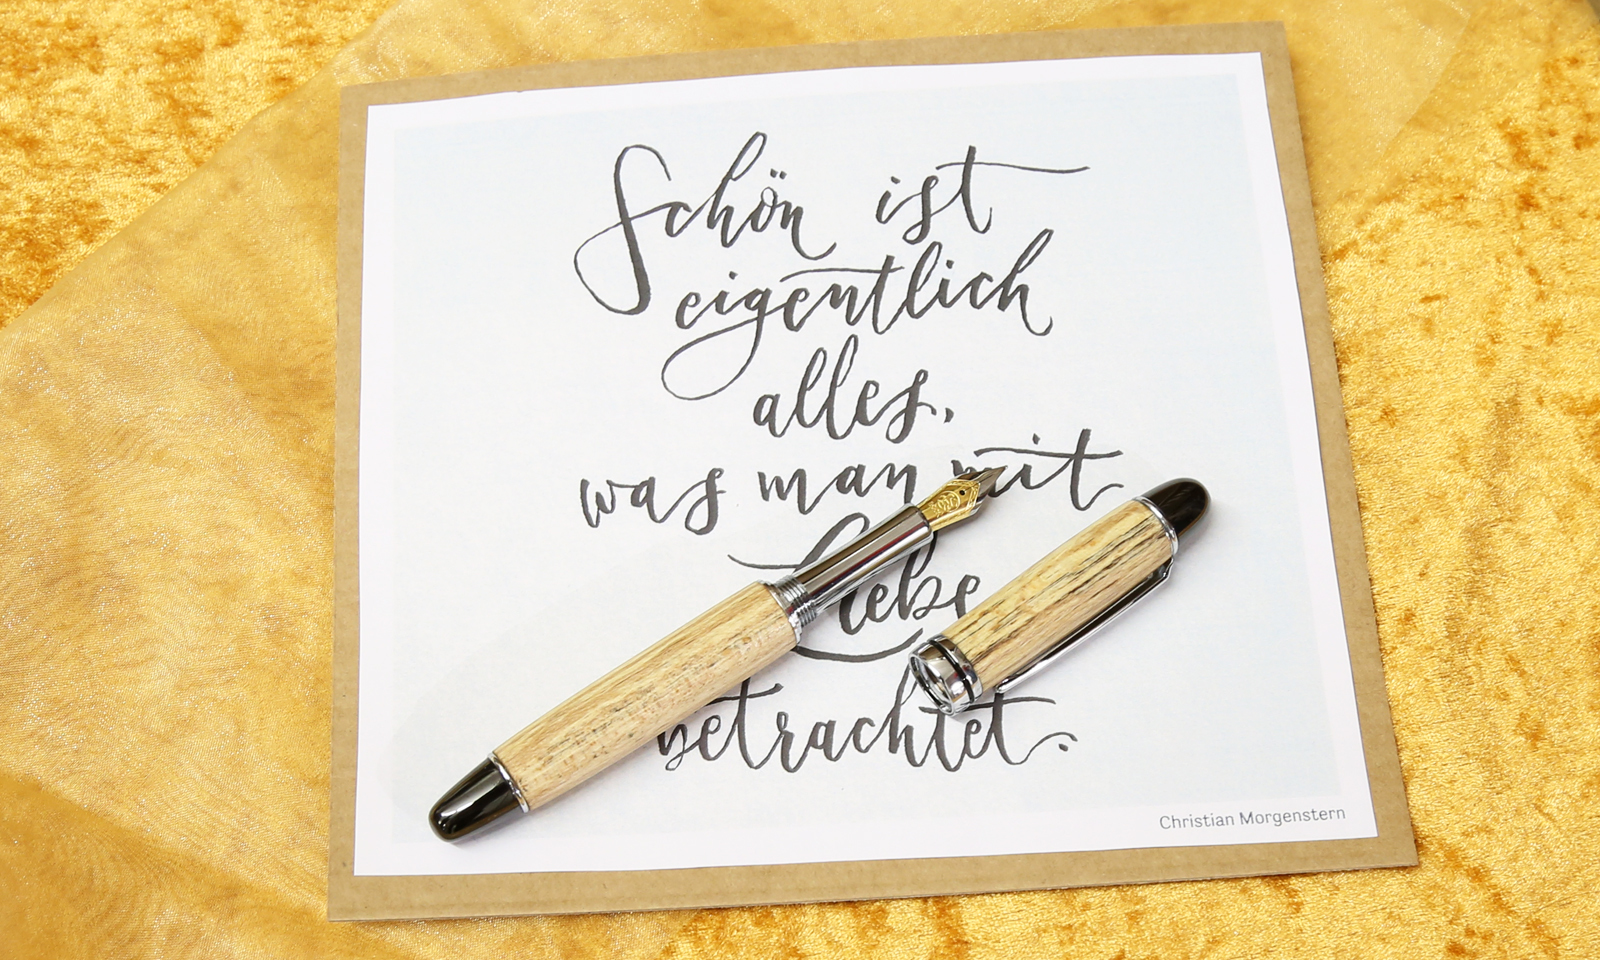 Schön ist
eigentlich
alles,
was man mit
Liebe
betrachtet.
Christian Morgenstern